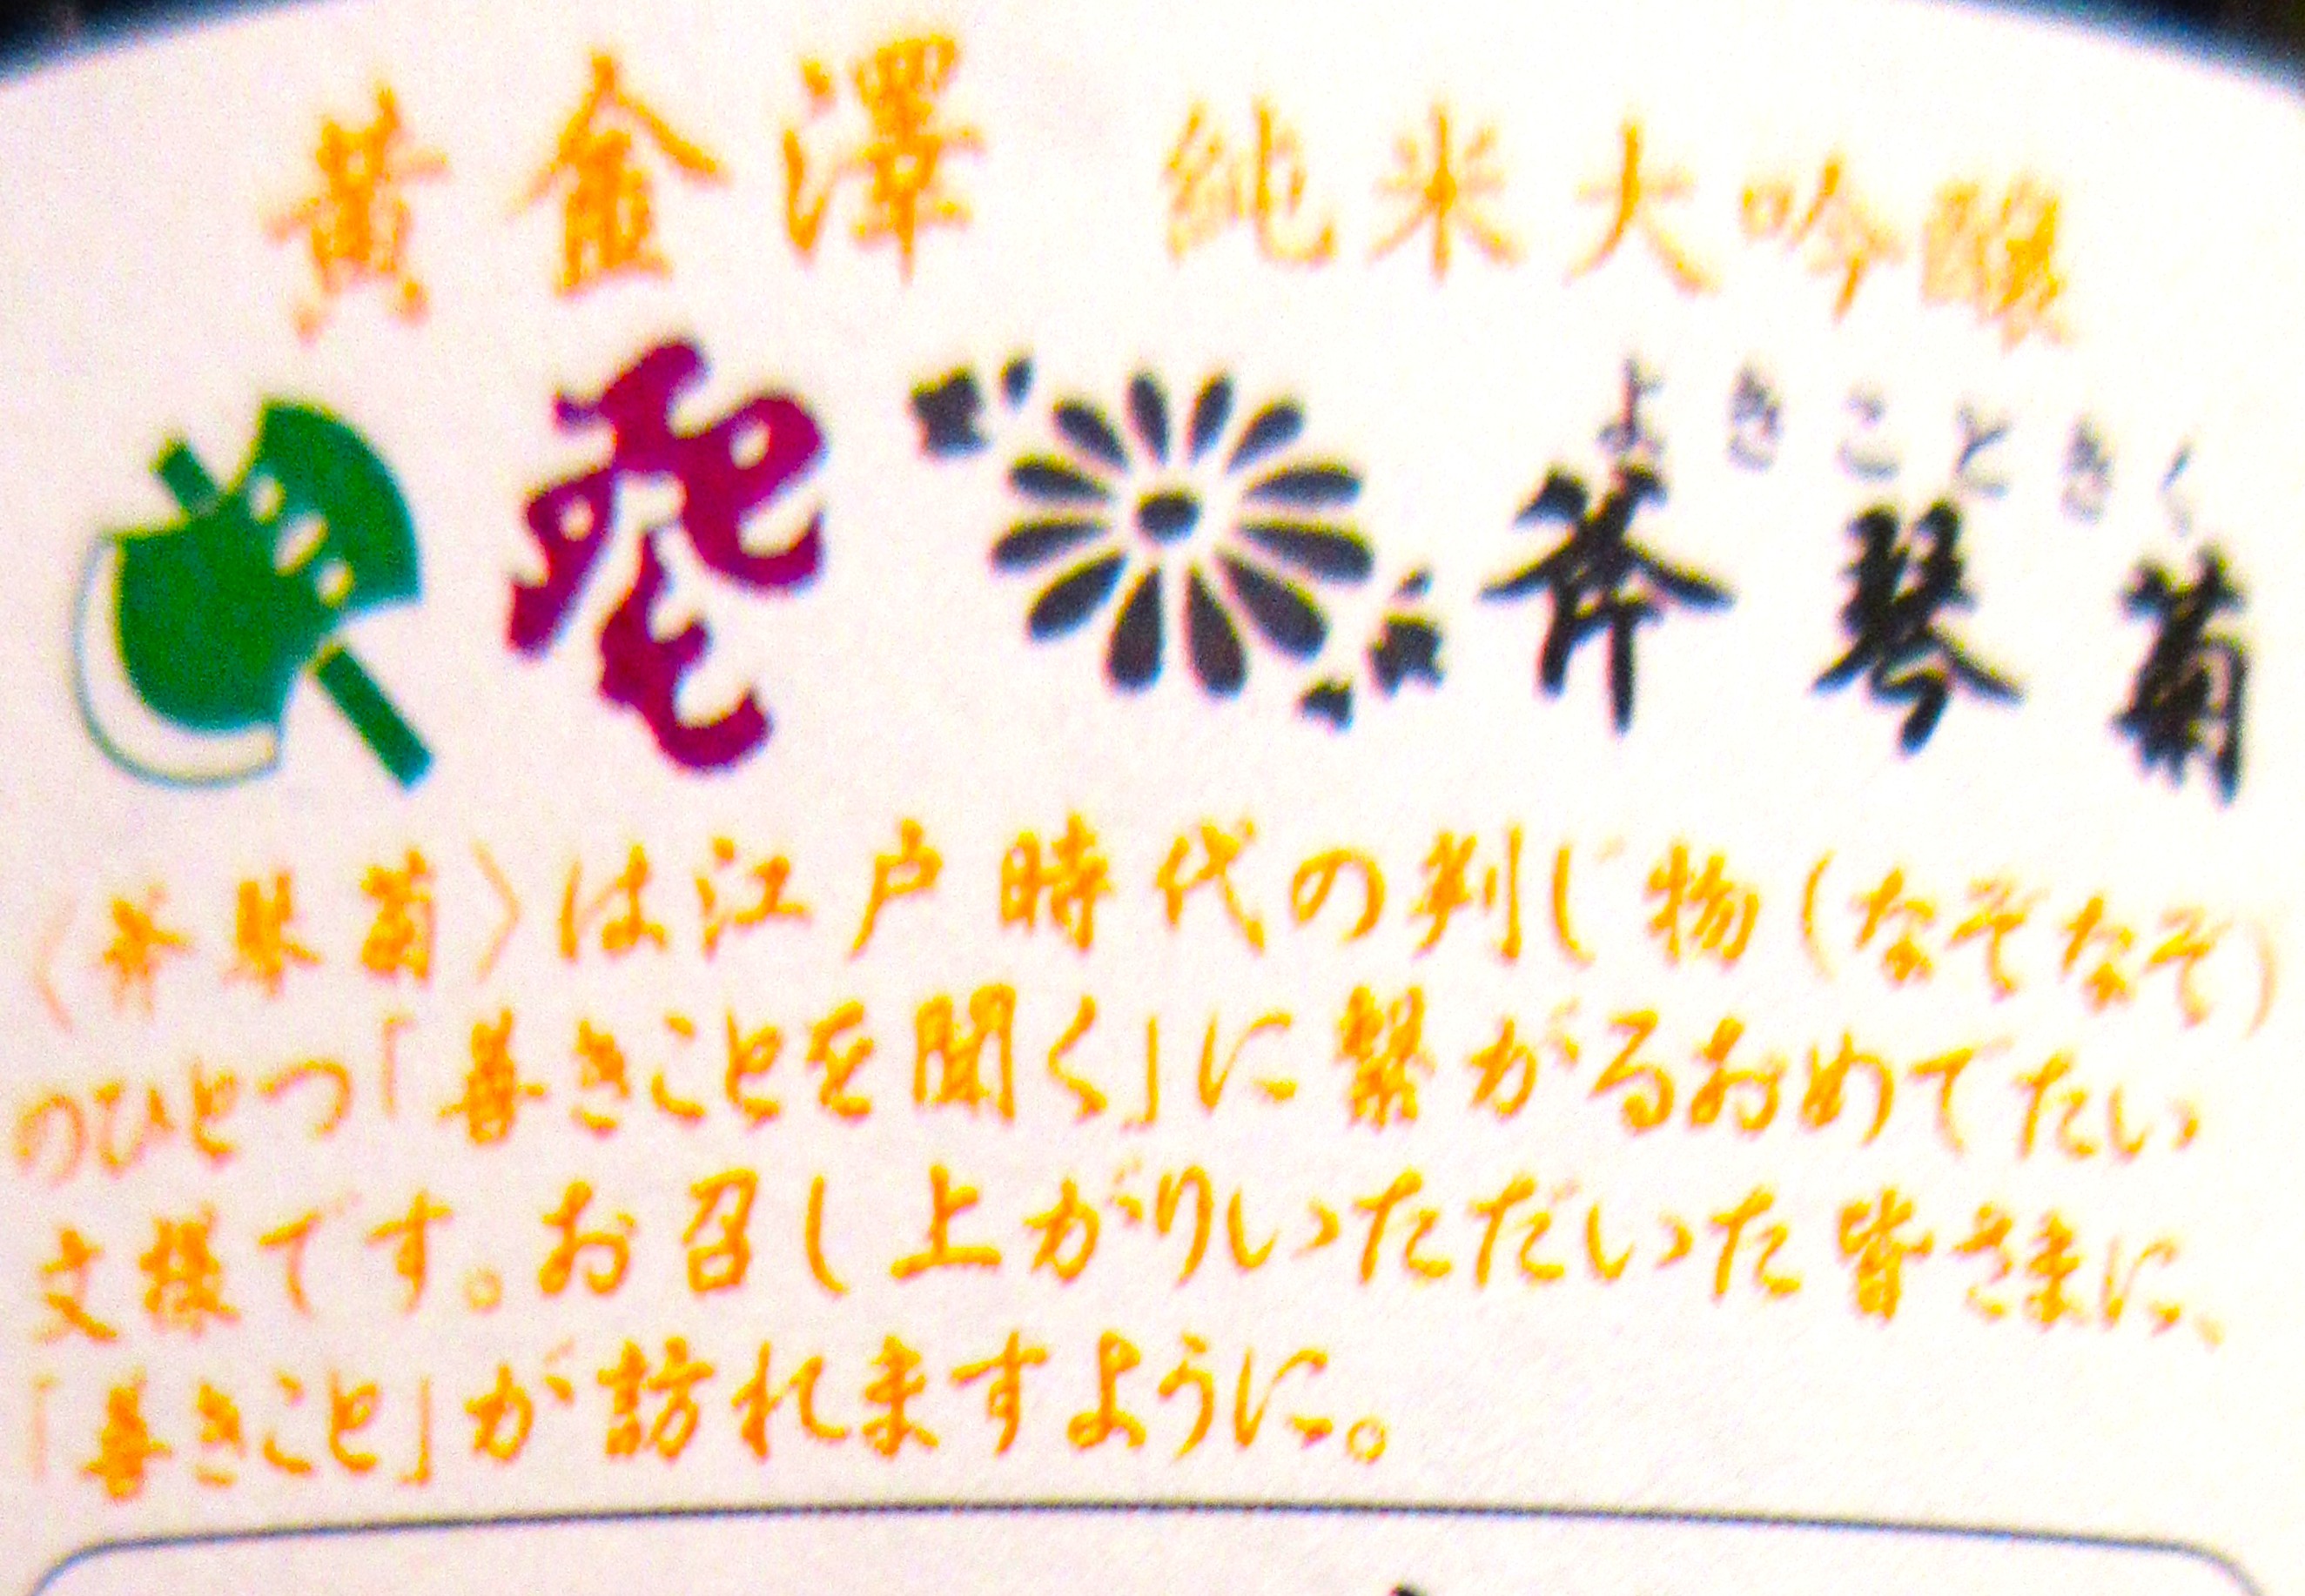 黄金澤 純米大吟醸
よきことぎく
斧琴菊
〈斧琴菊〉は江戸時代の判じ物(なぞなぞ)
のひとつ「善きことを聞く」に繋がるおめでたい
文様です。お召し上がりいただいた皆さまに、
「善きこと」が訪れますように。